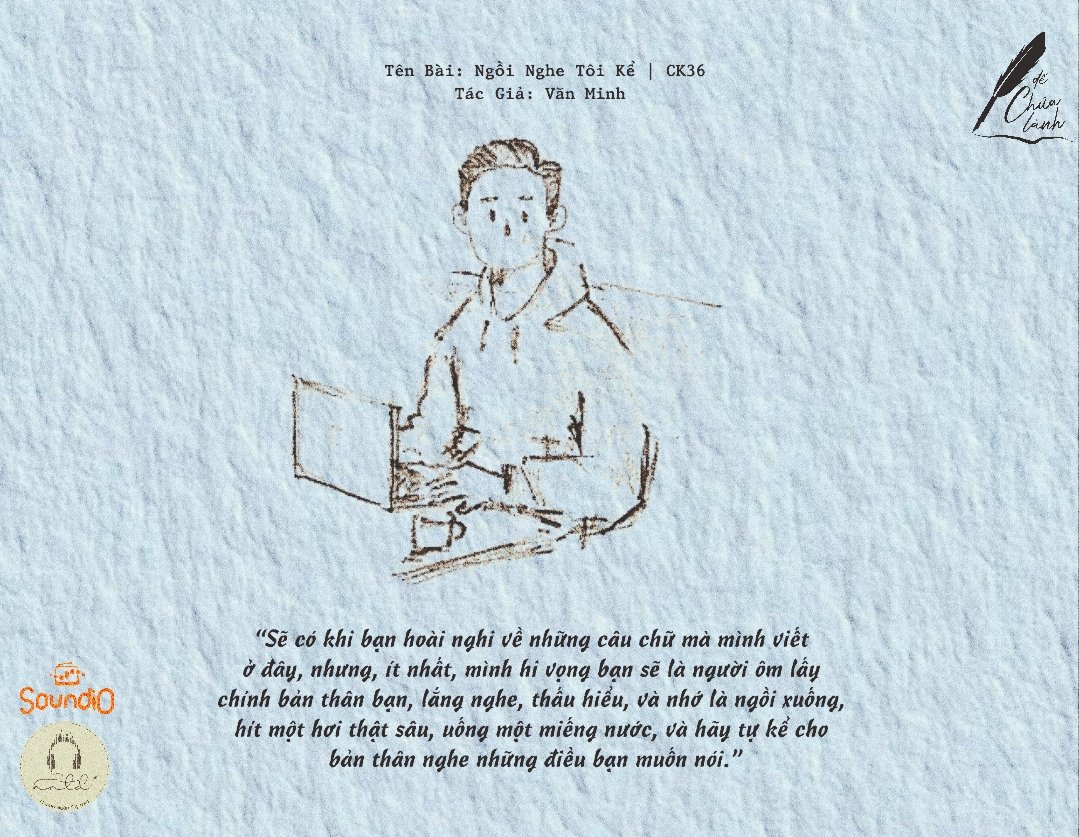 Tên Bài: Ngồi Nghe Tôi Kể | CK36
Tác Giả: Văn Minh
để
Chữa
lành
“Sẽ có khi bạn hoài nghi về những câu chữ mà mình viết
ở đây, nhưng, ít nhất, mình hi vọng bạn sẽ là người ôm lấy
chính bản thân bạn, lắng nghe, thấu hiểu, và nhớ là ngồi xuống,
hít một hơi thật sâu, uống một miếng nước, và hãy tự kể cho
bản thân nghe những điều bạn muốn nói.”
SoundiO